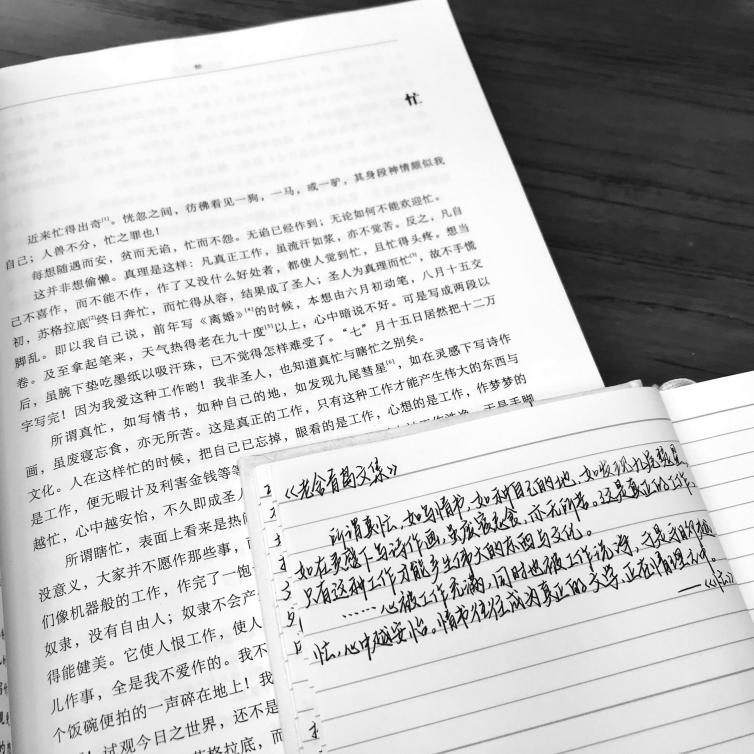 忙
忙
近来忙得出奇[1]。恍忽之间,彷彿看见一狗,一马,或一驴,其身段神情颇似我
自己;人兽不分,忙之罪也!
每想随遇而安,贫而无谄,忙而不怨。无谄已经作到;无论如何不能欢迎忙。
这并非想偷懒。真理是这样:凡真正工作,虽流汗如浆,亦不觉苦。反之,凡自
己不喜作,而不能不作,作了又没什么好处者,都使人觉到忙,且忙得头疼。想当
初,苏格拉底[2]终日奔忙,而忙得从容,结果成了圣人;圣人为真理而忙[3],故不手慌
脚乱。即以我自己说,前年写《离婚》[4]的时候,本想由六月初动笔,八月十五交
卷。及至拿起笔来,天气热得老在九十度[5]以上,心中暗说不好。可是写成两段以
后,虽腕下垫吃墨纸以吸汗珠,已不觉得怎样难受了。“七”月十五日居然把十二万
字写完!因为我爱这种工作哟!我非圣人,也知道真忙与瞎忙之别矣。
所谓真忙,如写情书,如种自己的地,如发现九尾彗星[6],如在灵感下写诗作
画,虽废寝忘食,亦无所苦。这是真正的工作,只有这种工作才能产生伟大的东西与
文化。人在这样忙的时候,把自己已忘掉,眼看的是工作,心想的是工作,作梦梦的
是工作,便无暇计及利害金钱等等
越忙,心中越安怡,不久即成圣人
所谓瞎忙,表面上看来是热闹
没意义,大家并不愿作那些事,而
们像机器般的工作,作完了一饱
奴隶,没有自由人;奴隶不会产
得能健美。它使人恨工作,使人
儿作事,全是我不爱作的。我不
个饭碗便拍的一声碎在地上!我
!试观今日之世界,还不是
格拉底,而
《老舍青岛文集》
所谓真忙,如写情书,如种自己的地,如发现九尾彗星,
如在灵感下写诗作画,虽废寝忘食,亦无所苦。这是真正的工作,
只有这种工作才能产生伟大的东西与文化。
……心被工作充满,同时也被工作洗净,于是手脚越
忙,心中越安怡。情书往往成为真正的文学,正在情理之中。
——《忙》